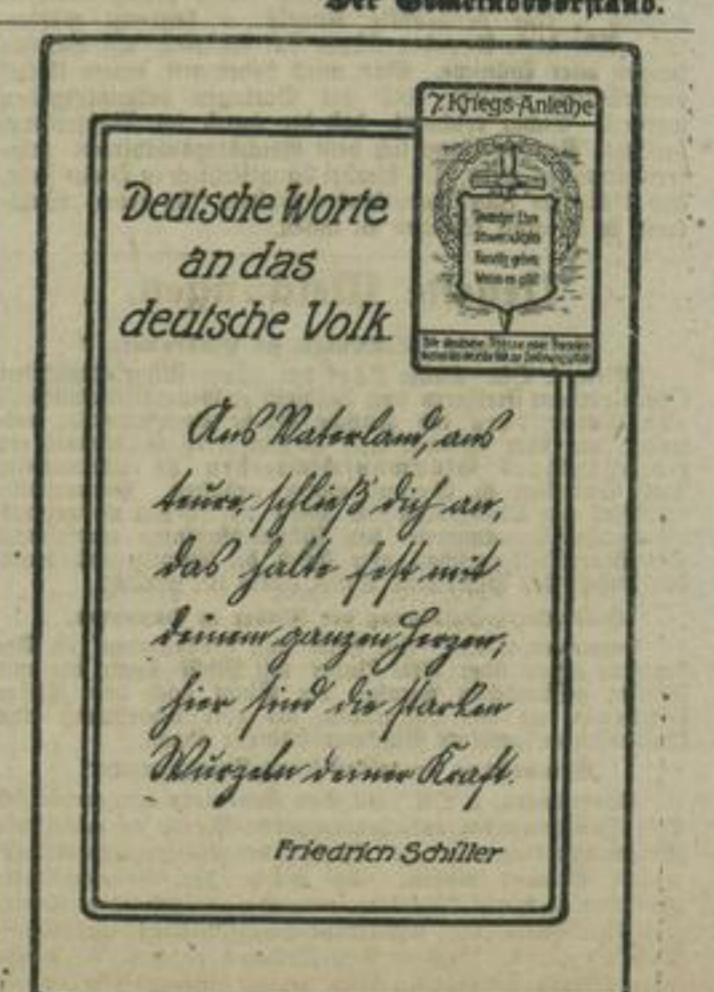 Der Gemeindevorstand.
7. Kriegs-Anleihe
Deutsche Worte
an das
deutsche Volk
Ans Vaterland, ans
teure, schließ' dich an,
das halte fest mit
deinem ganzen Herzen;
hier sind die starken
Wurzeln deiner Kraft.
Friedrich Schiller